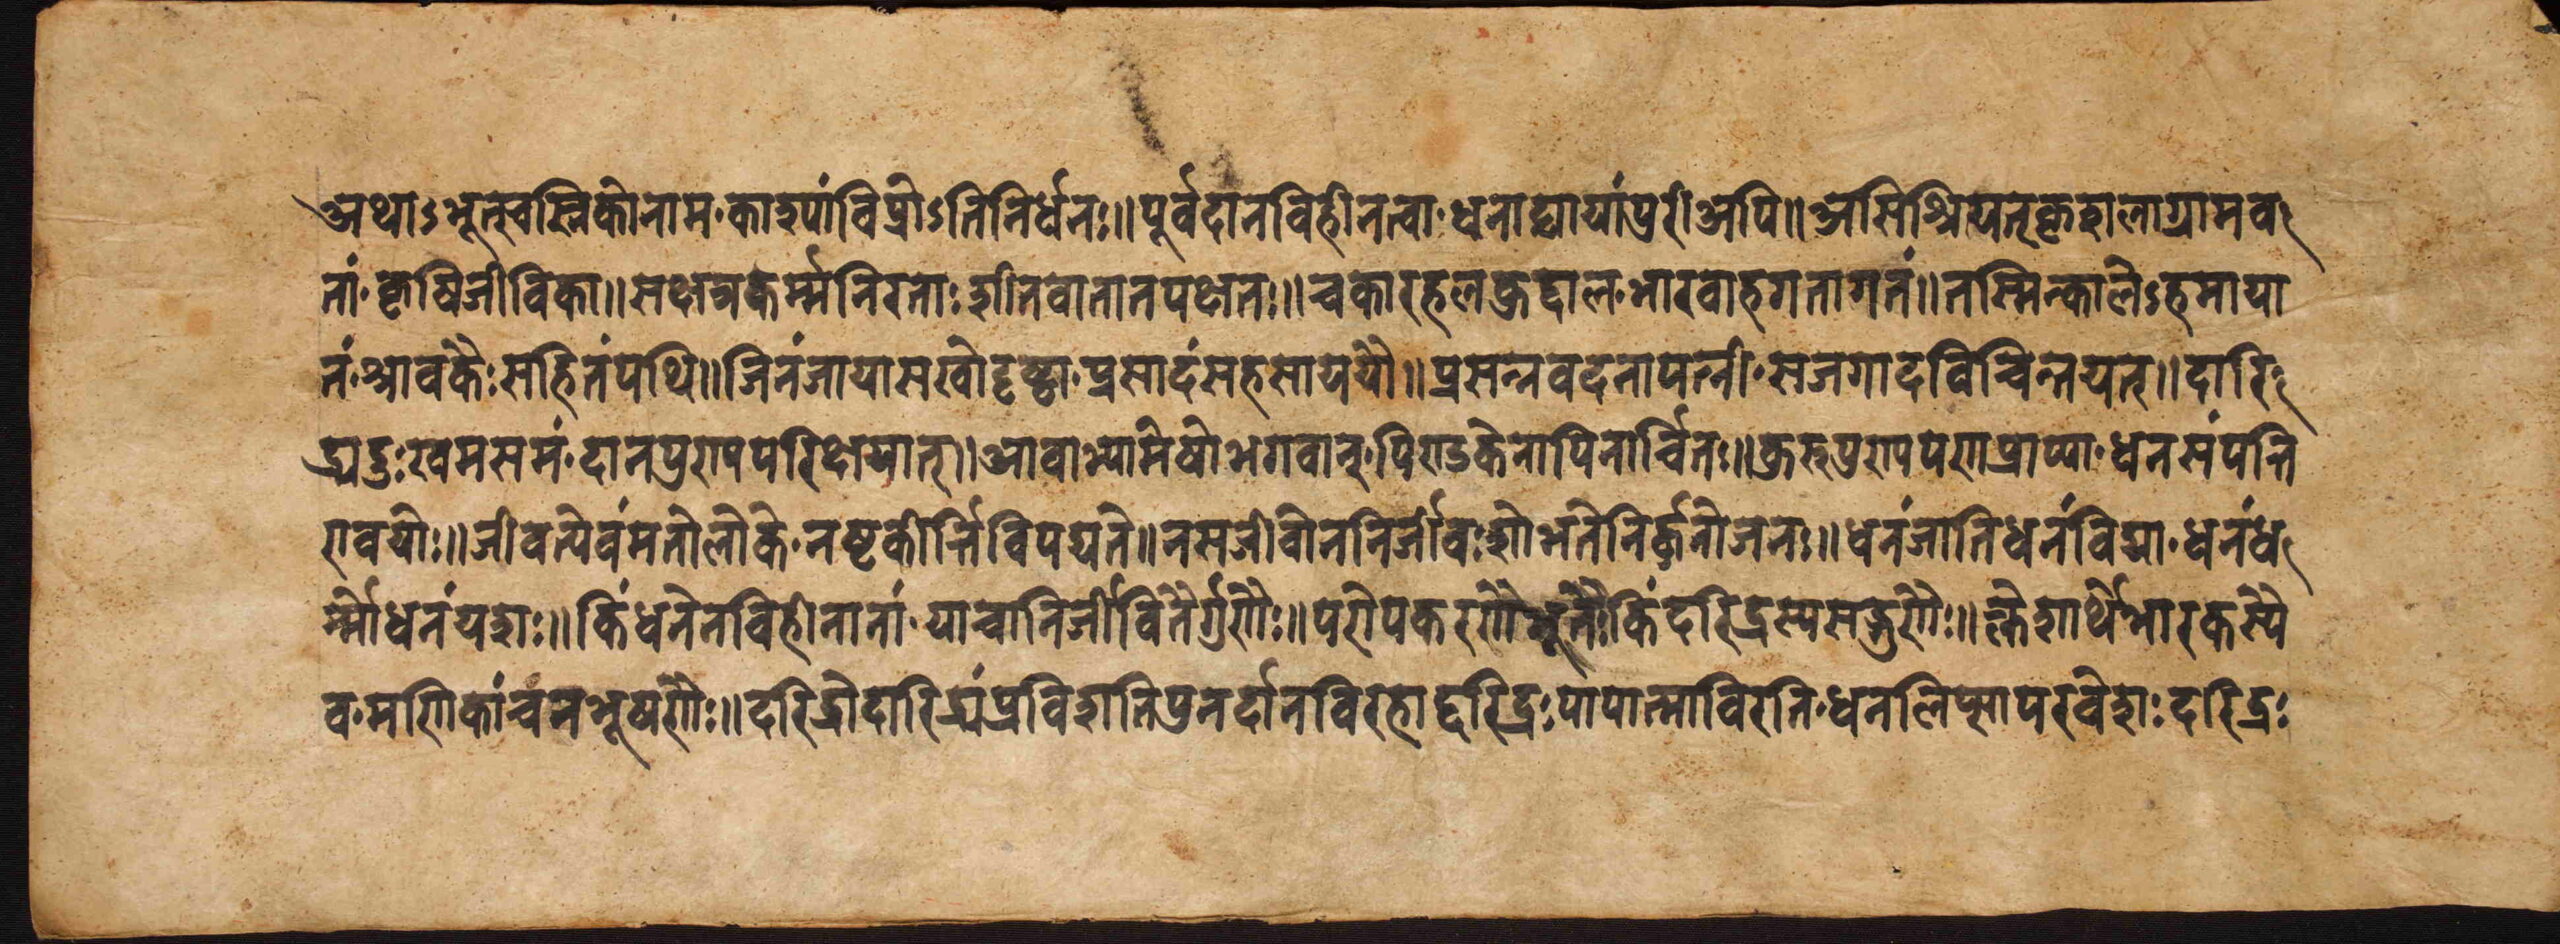 अथाऽभूत्स्वस्तिकोनाम॰काश्यांविप्रोऽतिनिर्धनः॥पूर्वदानविहीनत्वा॰धनाढ्यायांपुरीअपि॥असिश्रियत्कृशालाग्रामव
तां॰कृषिजीविका॥सक्षेत्रकर्म्मनिरतःशीतवातातपक्षतः॥चकारहलकुद्दाल॰भारवाहगतागतं॥तस्मिन्कालेऽहमाया
तं॰श्रावकैःसहितंपथि॥जिनंजायासखोदृष्ट्वा॰प्रसादंसहसाययौ॥प्रसन्नवदनापत्नीं॰सजगादविचिन्तयत्॥दारि
द्र्यदुःखमसमं॰दानपुण्यपरिक्षयात्॥आवाभ्यामेषोभगवान्॰पिण्डकेनापिनार्चितः॥कुरुपुण्यपणप्राप्या॰धनसंपत्ति
रावयोः॥जीवत्येवंमतोलोके॰नष्टकीर्त्तिविपद्यते॥नसजीवोननिर्जीवःशोभतेनिर्द्धनोजनः॥धनंजातिधनंविद्या॰धनंध
र्म्मोधनंयशः॥किंधनेनविहीनानां॰याचानिर्जीवितैर्गुणैः॥परोपकरणैर्भूतैःकिंदरिद्रस्यसद्गुणैः॥क्लेशार्थैभारकस्यै
व॰मणिकांचनभूषणैः॥दरिद्रोदारिद्र्यंप्रविशतिपुनर्दानविरहाद्दरिद्रःपापात्माविरति॰धनलिप्सापरवेशःदरिद्रः